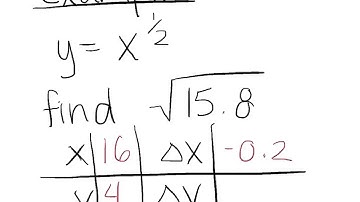 y = x^1/2
find √15.8
x | 16 | Δx | -0.2
y | 4 | Δy |